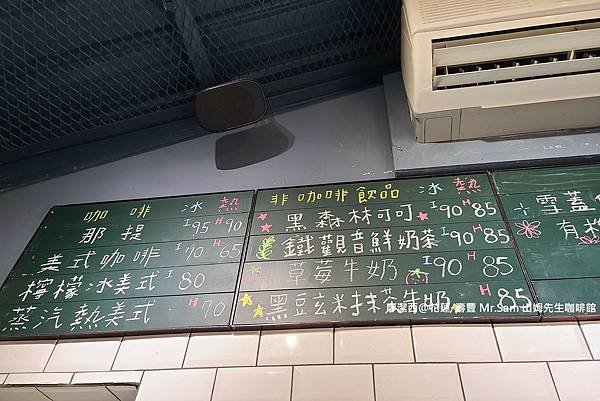 咖啡 冰 熱
那提 I95 H90
美式咖啡 I70 H65
檸檬冰美式 I80
蒸汽熱美式 H70
非咖啡飲品 冰 熱
黑森林可可 I90 H85
鐵觀音鮮奶茶 I90 H85
草莓牛奶 I90 85
黑豆玄米抹茶牛奶 H85
雪蓋
有機
Mr.Sam山姆先生咖啡館